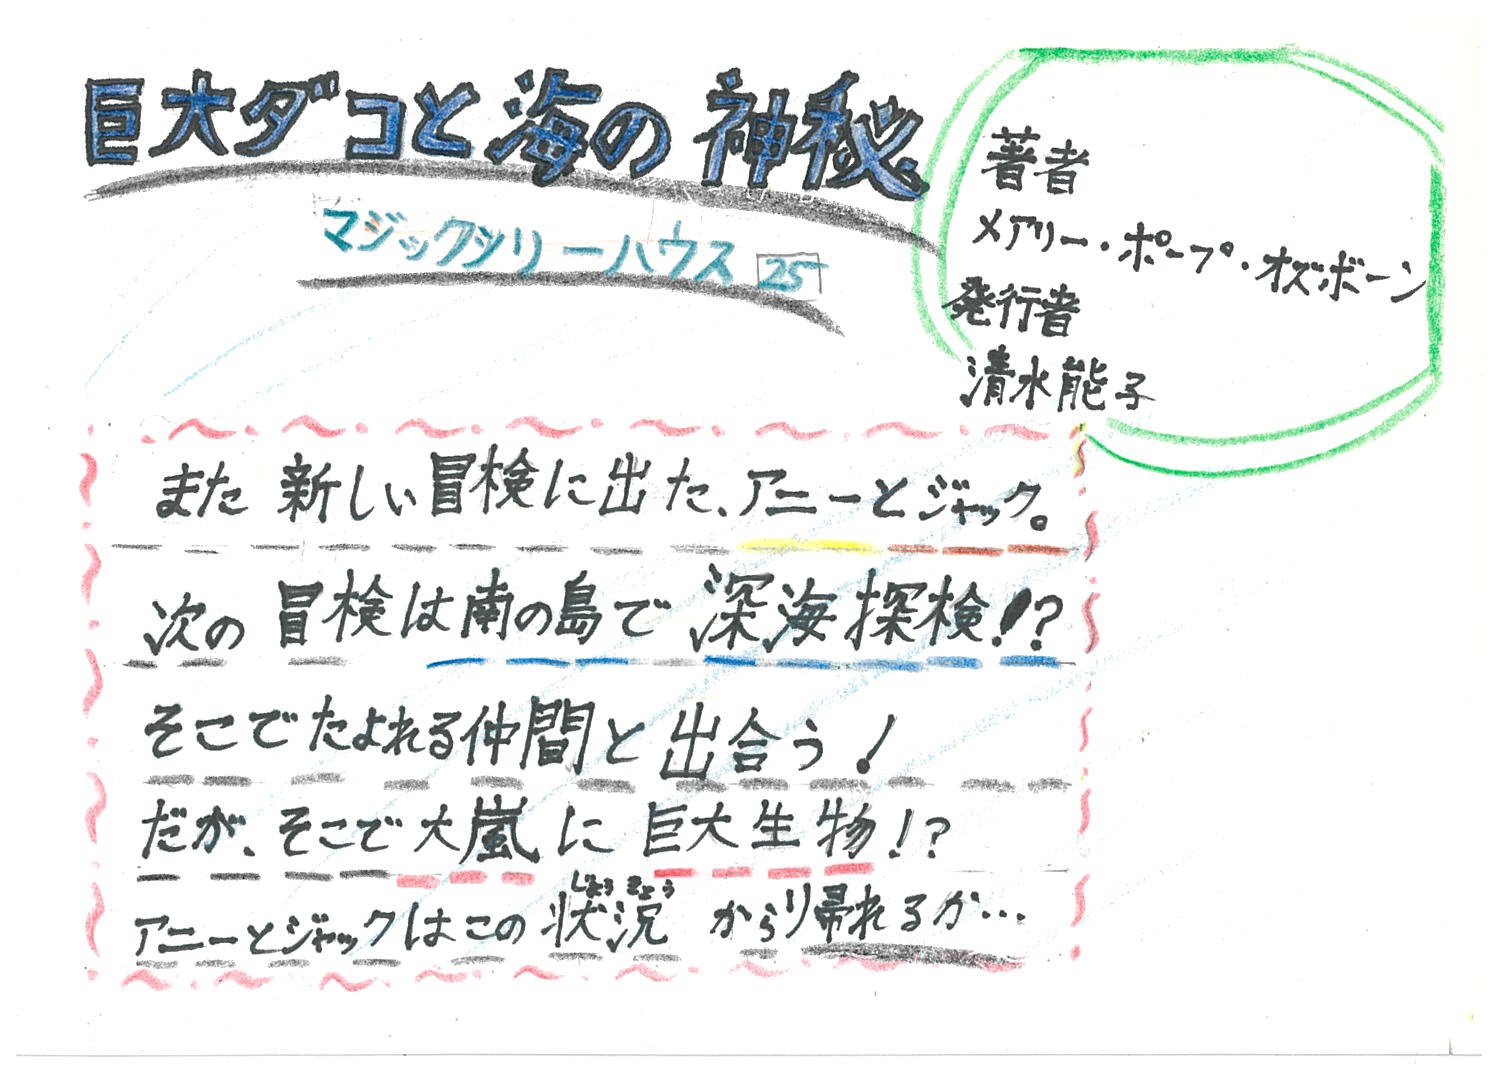 巨大ダコと海の神秘
マジックツリーハウス 25
著者
メアリー・ポープ・オズボーン
発行者
清水能子
また新しい冒検に出た、アニーとジャック。
次の冒検は南の島で深海探検!?
そこでたよれる仲間と出合う!
だが、そこで大嵐に巨大生物!?
じょうきょう
アニーとジャックはこの状況から帰れるか…